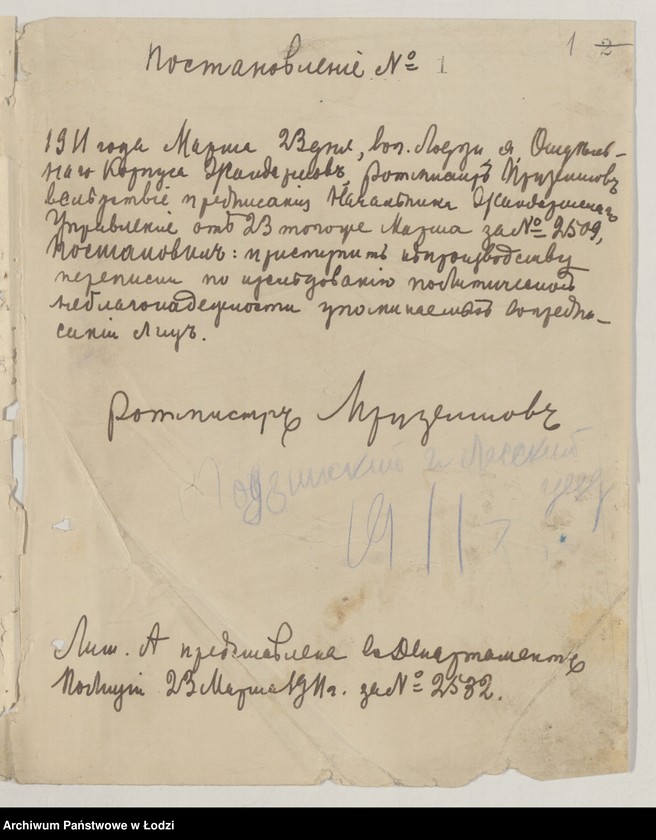 1 2
Постановленіе № 1
1911 года Марта 23 дня, въ г. Лодзи я, Отдѣль-
наго Корпуса Жандармовъ, Ротмистръ
вслѣдствіе предписанія Начальника Жандармскаго
Управленія отъ 23 того же Марта за № 2509,
постановилъ: приступить къ производству
переписки по изслѣдованію политической
неблагонадежности упоминаемыхъ въ предпи-
саніи лицъ.
Ротмистръ
Лодзинскій и Ласскій
уѣзд.
1911 г.
Лит. А представлена въ Департаментъ
Полиціи 23 Марта 1911 г. за № 2532.
Archiwum Państwowe w Łodzi